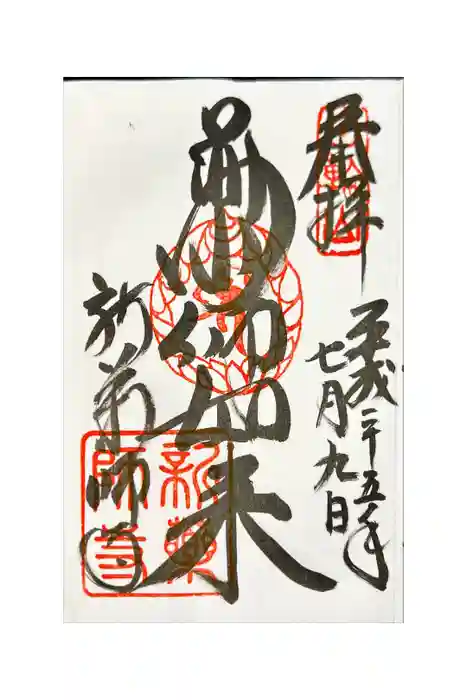 奉拝
平成二十五年
七月九日
如来
新薬師寺
新薬
師寺